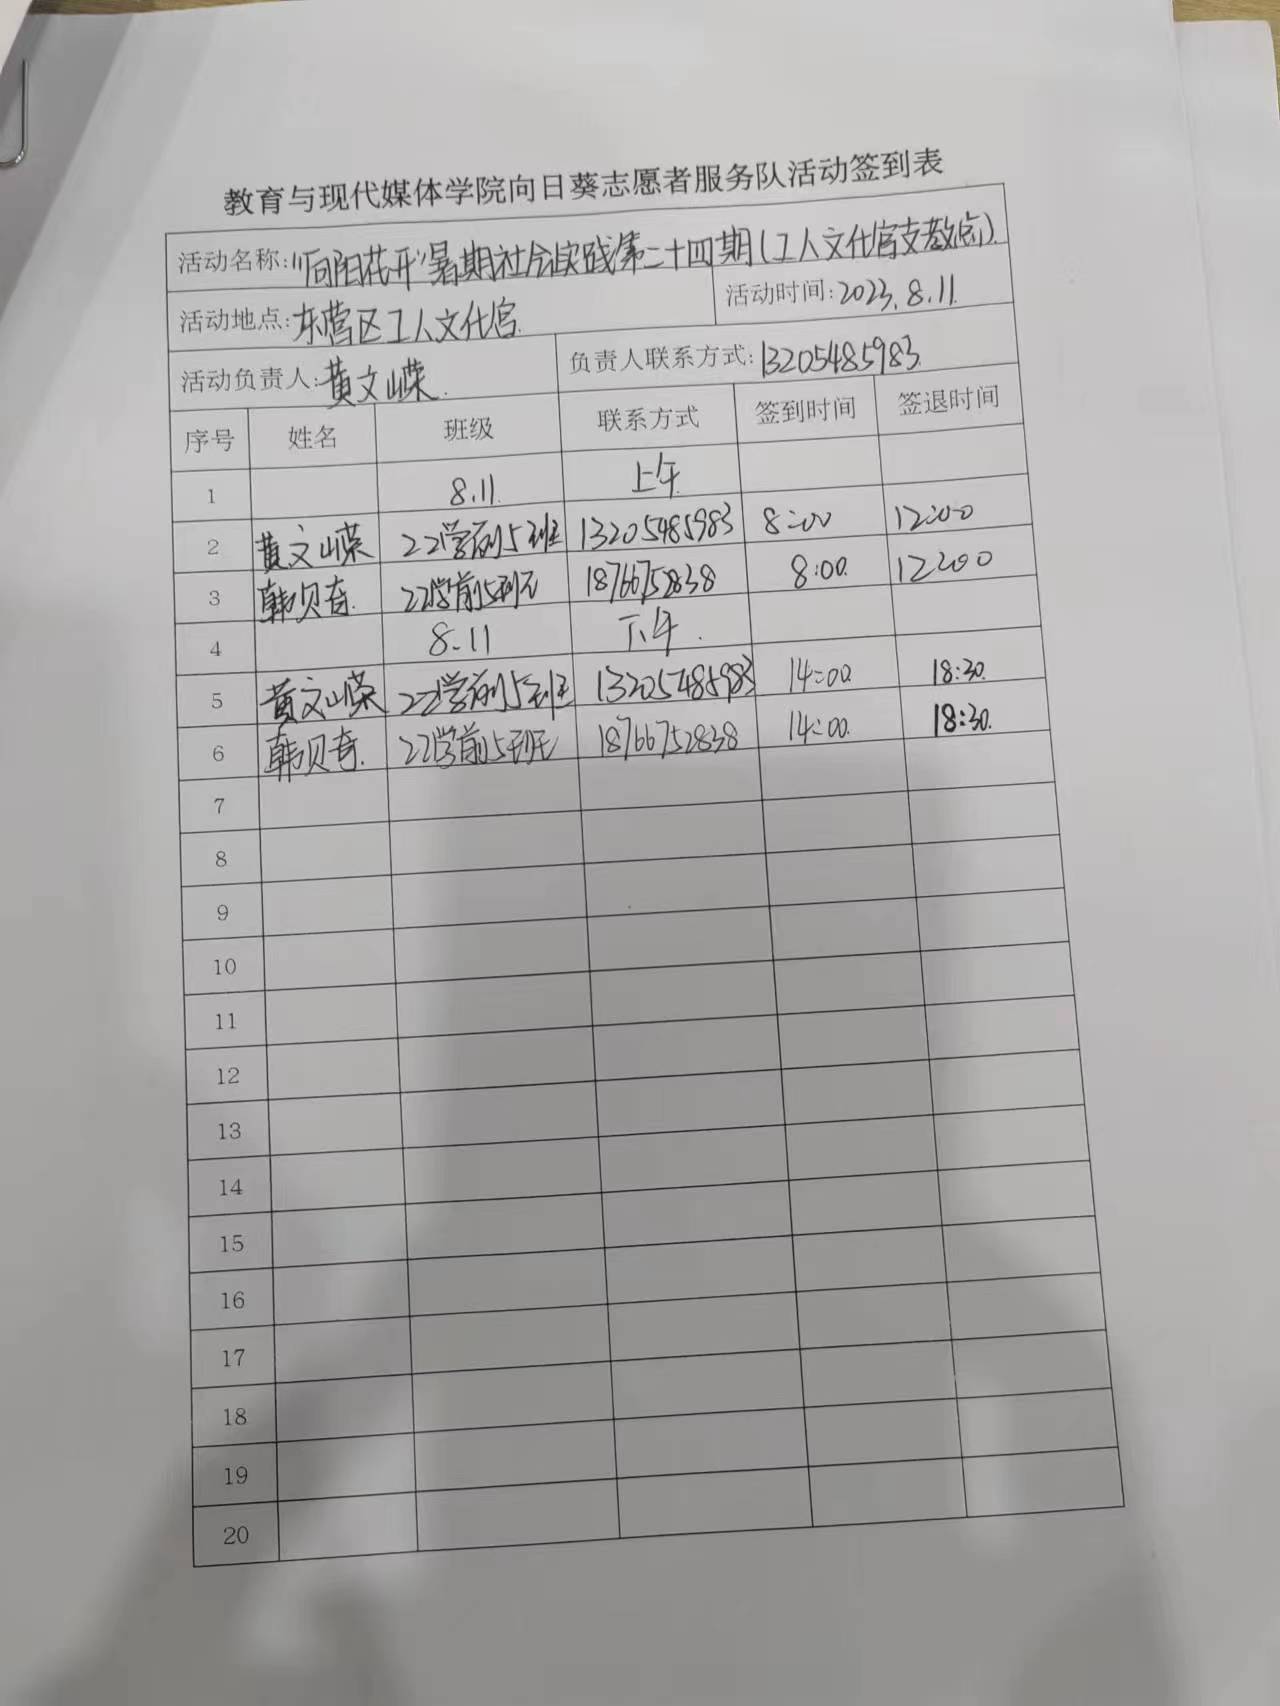 教育与现代媒体学院向日葵志愿者服务队活动签到表
活动名称:"向阳花开"暑期社会实践第二十四期(工人文化宫支教点).
活动地点:东营区工人文化宫. 活动时间:2023.8.11.
活动负责人:黄文嵘. 负责人联系方式:13205485983.
序号 姓名 班级 联系方式 签到时间 签退时间
1 8.11. 上午.
2 黄文嵘 22学前5班 13205485983 8:00 12:00
3 韩贝奇. 22学前5班 18766752838 8:00. 12:00
4 8.11 下午.
5 黄文嵘 22学前5班 13205485983 14:00. 18:30.
6 韩贝奇. 22学前5班 18766752838 14:00. 18:30.
7
8
9
10
11
12
13
14
15
16
17
18
19
20